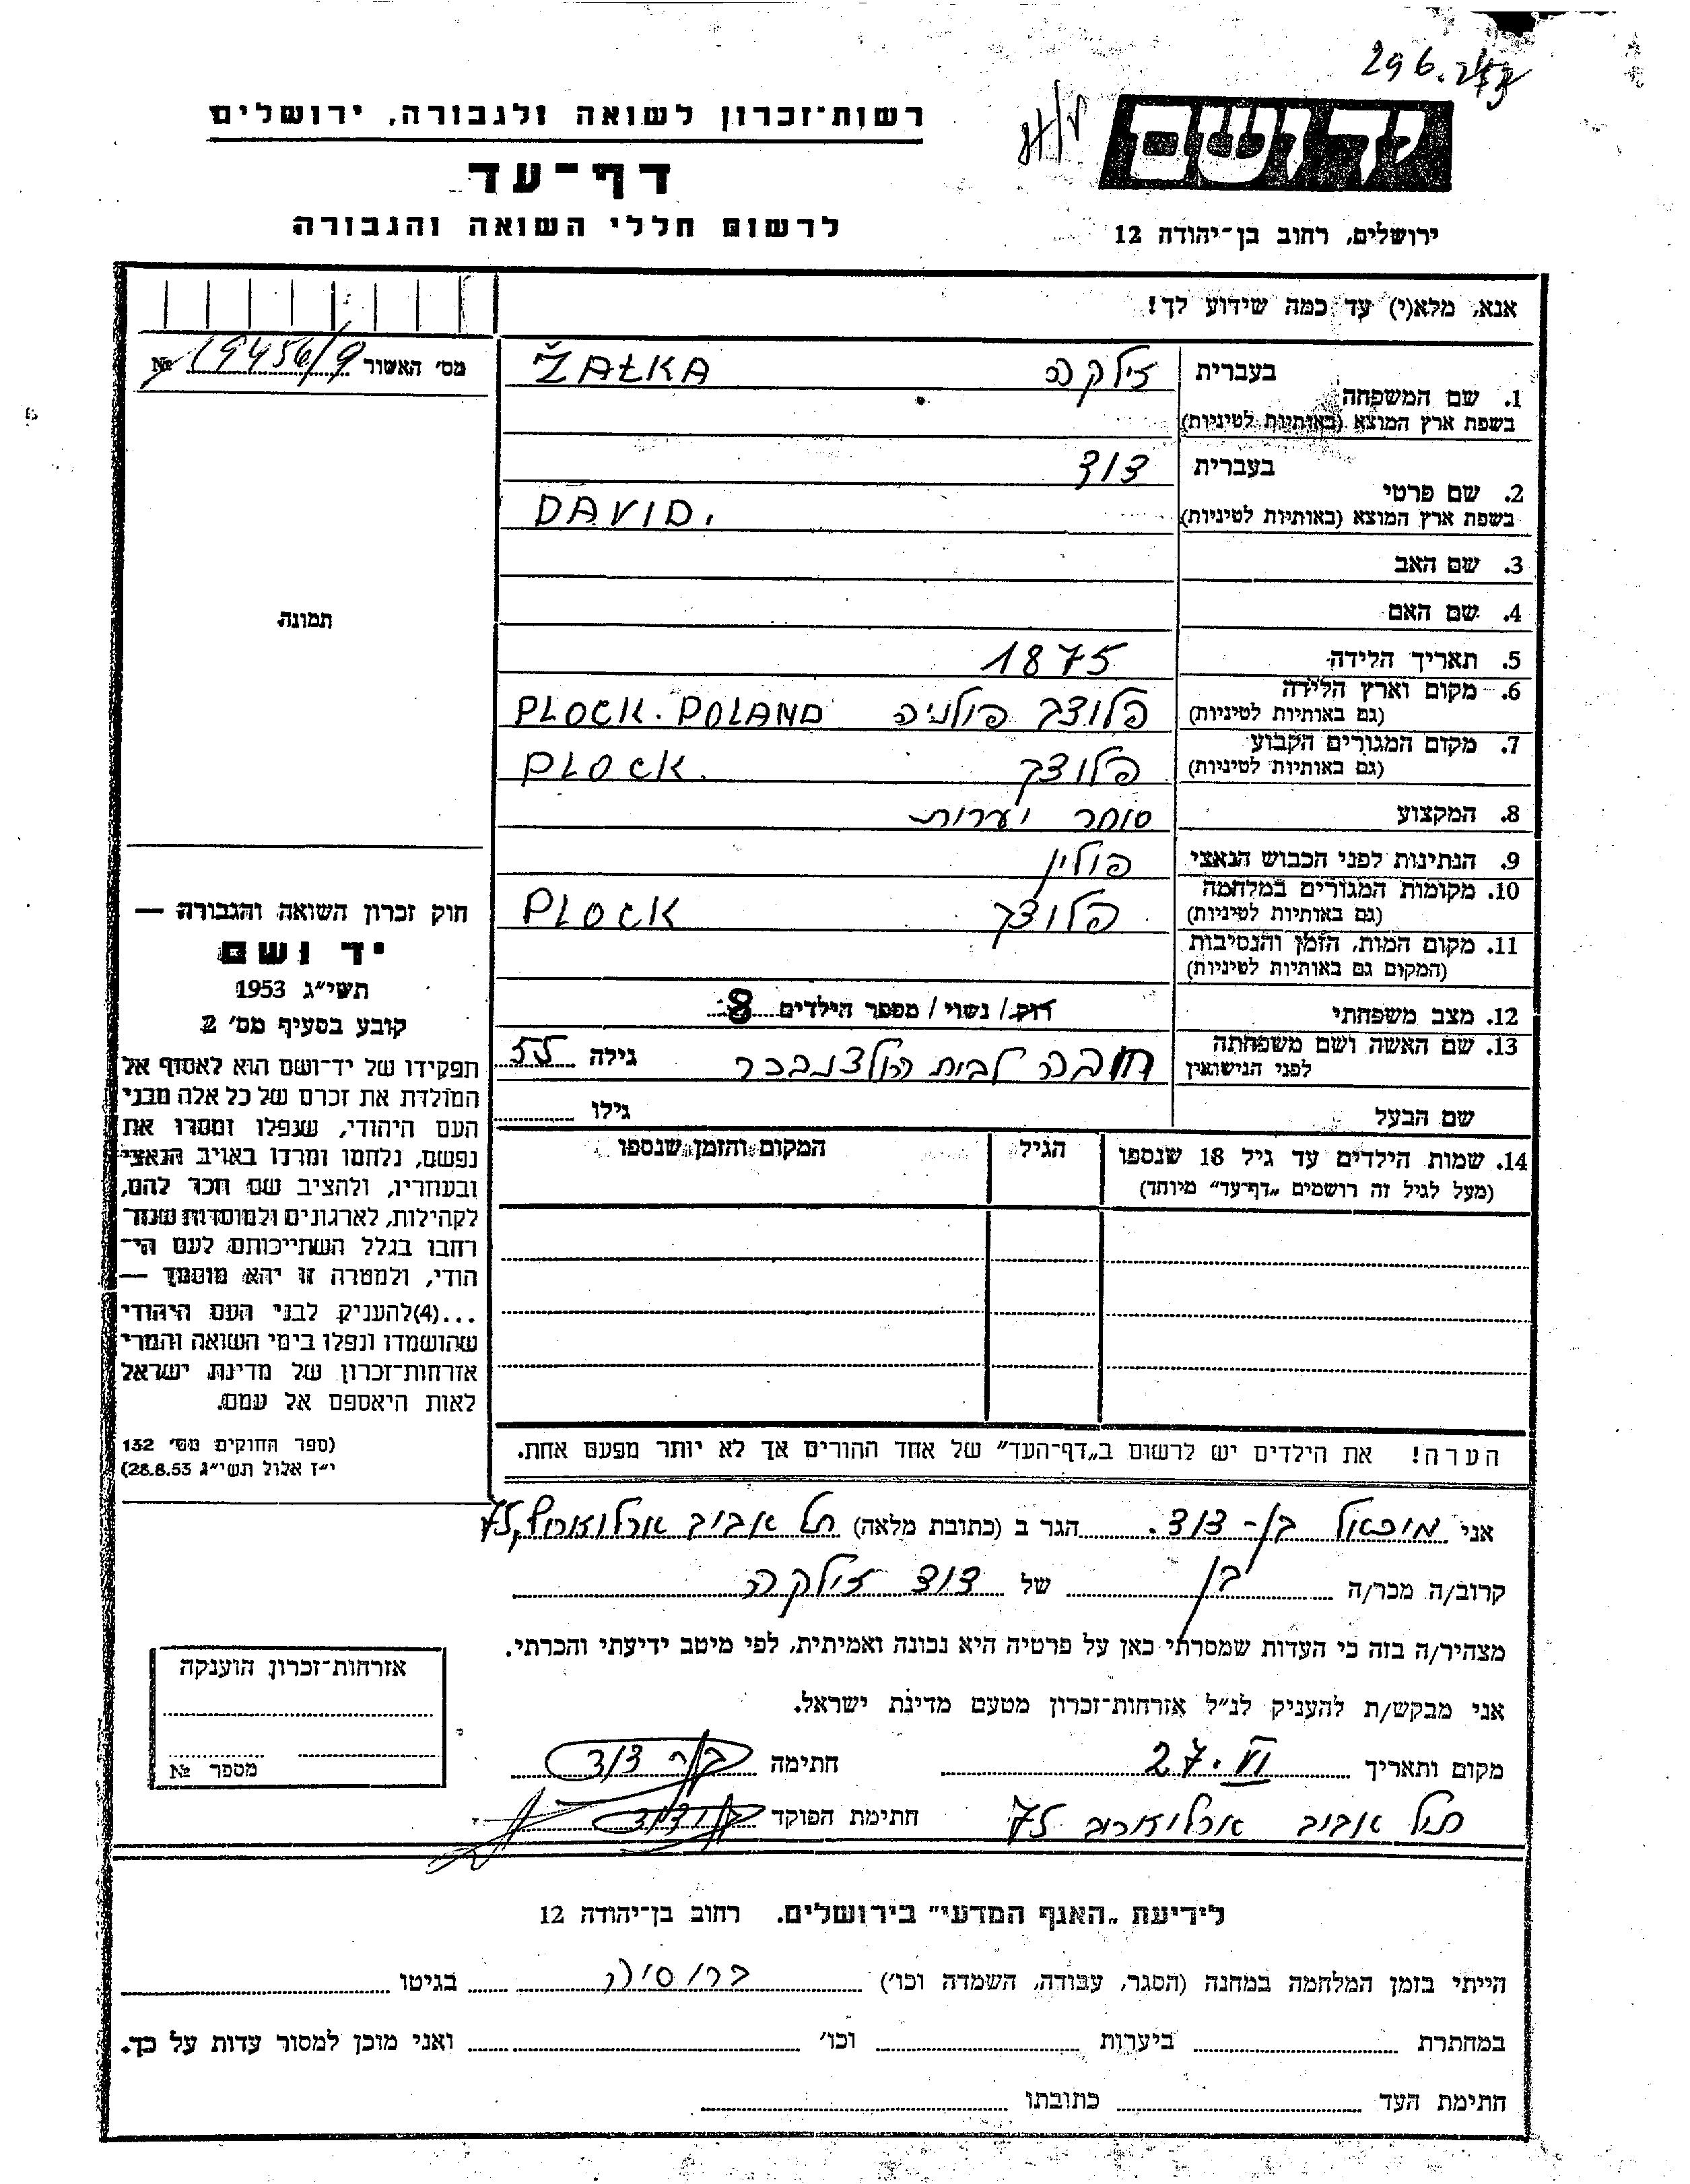 296.243
רשות־זכרון לשואה ולגבורה, ירושלים
יד ושם
דף־עד
לרשום חללי השואה והגבורה
ירושלים, רחוב בן־יהודה 12
אנא, מלא(י) עד כמה שידוע לך!
מס׳ האשור 19456/9 №
1. שם המשפחה בעברית זילקה ŻAŁKA
בשפת ארץ המוצא (באותיות לטיניות)
2. שם פרטי בעברית דוד
בשפת ארץ המוצא (באותיות לטיניות) DAVID.
3. שם האב
4. שם האם
תמונה
5. תאריך הלידה 1875
6. מקום וארץ הלידה
(גם באותיות לטיניות) פלוצק פולניה PLOCK. POLAND
7. מקום המגורים הקבוע
(גם באותיות לטיניות) פלוצק PLOCK.
8. המקצוע סוחר יערות
9. הנתינות לפני הכבוש הנאצי פולין
10. מקומות המגורים במלחמה
(גם באותיות לטיניות) פלוצק PLOCK
11. מקום המות, הזמן והנסיבות
(המקום גם באותיות לטיניות)
12. מצב משפחתי רוק / נשוי / מספר הילדים 8
13. שם האשה ושם משפחתה
לפני הנישואין לבית הולצנבכר גילה 55
שם הבעל גילו
14. שמות הילדים עד גיל 18 שנספו הגיל המקום והזמן שנספו
(מעל לגיל זה רושמים „דף־עד” מיוחד)
הערה! את הילדים יש לרשום ב„דף־העד” של אחד ההורים אך לא יותר מפעם אחת.
חוק זכרון השואה והגבורה —
יד ושם
תשי״ג 1953
קובע בסעיף מס׳ 2
תפקידו של יד־ושם הוא לאסוף אל
המולדת את זכרם של כל אלה מבני
העם היהודי, שנפלו ומסרו את
נפשם, נלחמו ומרדו באויב הנאצי
ובעוזריו, ולהציב שם וזכר להם,
לקהילות, לארגונים ולמוסדות שנח־
רבו בגלל השתייכותם לעם הי־
הודי, ולמטרה זו יהא מוסמך —
...(4) להעניק לבני העם היהודי
שהושמדו ונפלו בימי השואה והמרי
אזרחות־זכרון של מדינת ישראל
לאות היאספם אל עמם.
(ספר החוקים מס׳ 132
י״ז אלול תשי״ג 28.8.53)
אני מיכאל בן־דוד. הגר ב (כתובת מלאה) תל אביב ארלוזורוף 75
קרוב/ה מכר/ה בן של דוד זילקה
מצהיר/ה בזה כי העדות שמסרתי כאן על פרטיה היא נכונה ואמיתית, לפי מיטב ידיעתי והכרתי.
אני מבקש/ת להעניק לנ״ל אזרחות־זכרון מטעם מדינת ישראל.
מקום ותאריך 27.VI חתימה בן דוד
תל אביב ארלוזורוב 75 חתימת הפוקד בן דוד
אזרחות־זכרון הוענקה
מספר №
לידיעת „האגף המדעי” בירושלים. רחוב בן־יהודה 12
הייתי בזמן המלחמה במחנה (הסגר, עבודה, השמדה וכו׳) ברוסיה בגיטו
במחתרת ביערות וכו׳ ואני מוכן למסור עדות על כך.
חתימת העד כתובתו